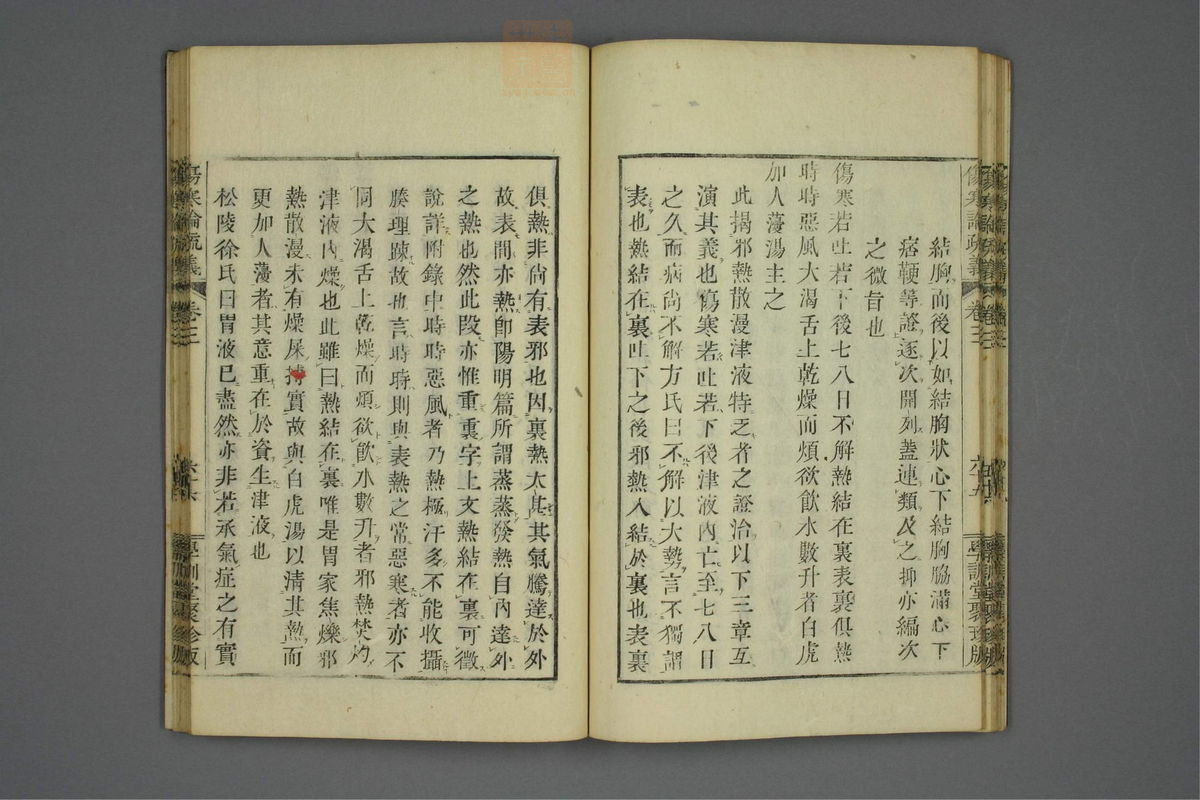 傷寒論疏義 卷三 六十九 學訓堂聚珍版
結胸而後以如結胸狀心下結胸脇滿心下
痞鞕等證逐次開列蓋連類及之抑亦編次
之微旨也
傷寒若吐若下後七八日不解熱結在裏表裏俱熱
時時惡風大渴舌上乾燥而煩欲飲水數升者白虎
加人葠湯主之
此揭邪熱散漫津液特乏者之證治以下三章互
演其義也傷寒若吐若下後津液內亡至七八日
之久而病尚不解方氏曰不解以大勢言不獨謂
表也熱結在裏吐下之後邪熱入結於裏也表裏
俱熱非尚有表邪也因裏熱太甚其氣騰達於外
故表間亦熱卽陽明篇所謂蒸蒸發熱自內達外
之熱也然此段亦惟重裏字上文熱結在裏可徵
說詳附錄中時時惡風者乃熱極汗多不能收攝
腠理疎故也言時時則與表熱之常惡寒者亦不
同大渴舌上乾燥而煩欲飲水數升者邪熱焚灼
津液內燥也此雖曰熱結在裏唯是胃家焦爍邪
熱散漫未有燥屎搏實故與白虎湯以清其熱而
更加人葠者其意重在於資生津液也
松陵徐氏曰胃液已盡然亦非若承氣症之有實
傷寒論疏義 卷三 學訓堂聚珍版